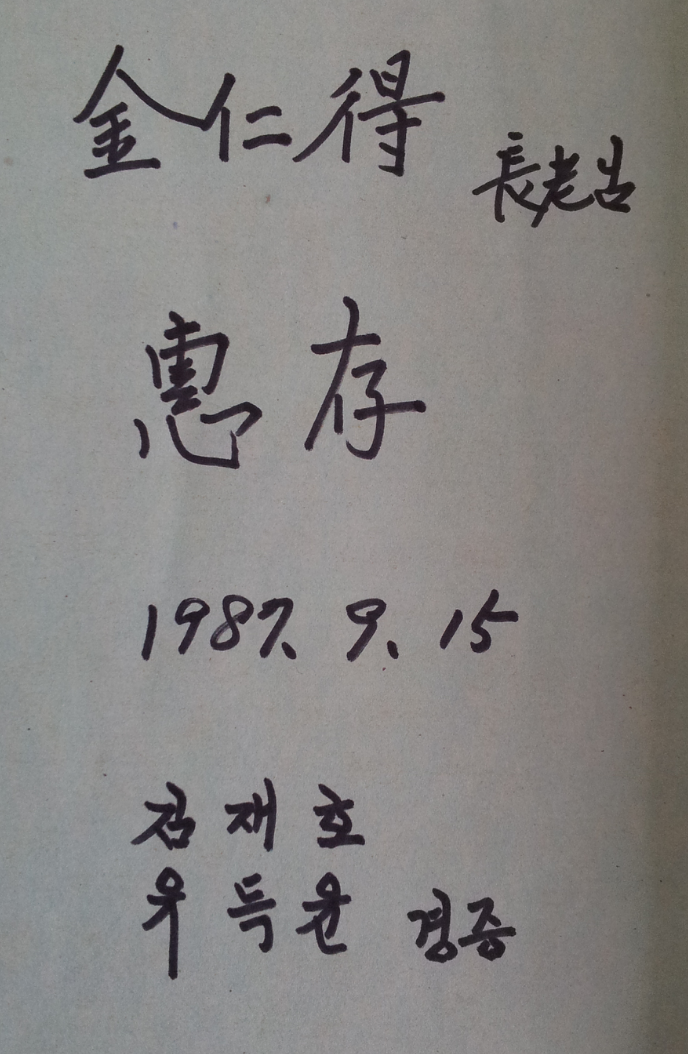 金仁得 長老님
惠存
1987. 9. 15
김재호
우득윤 경증